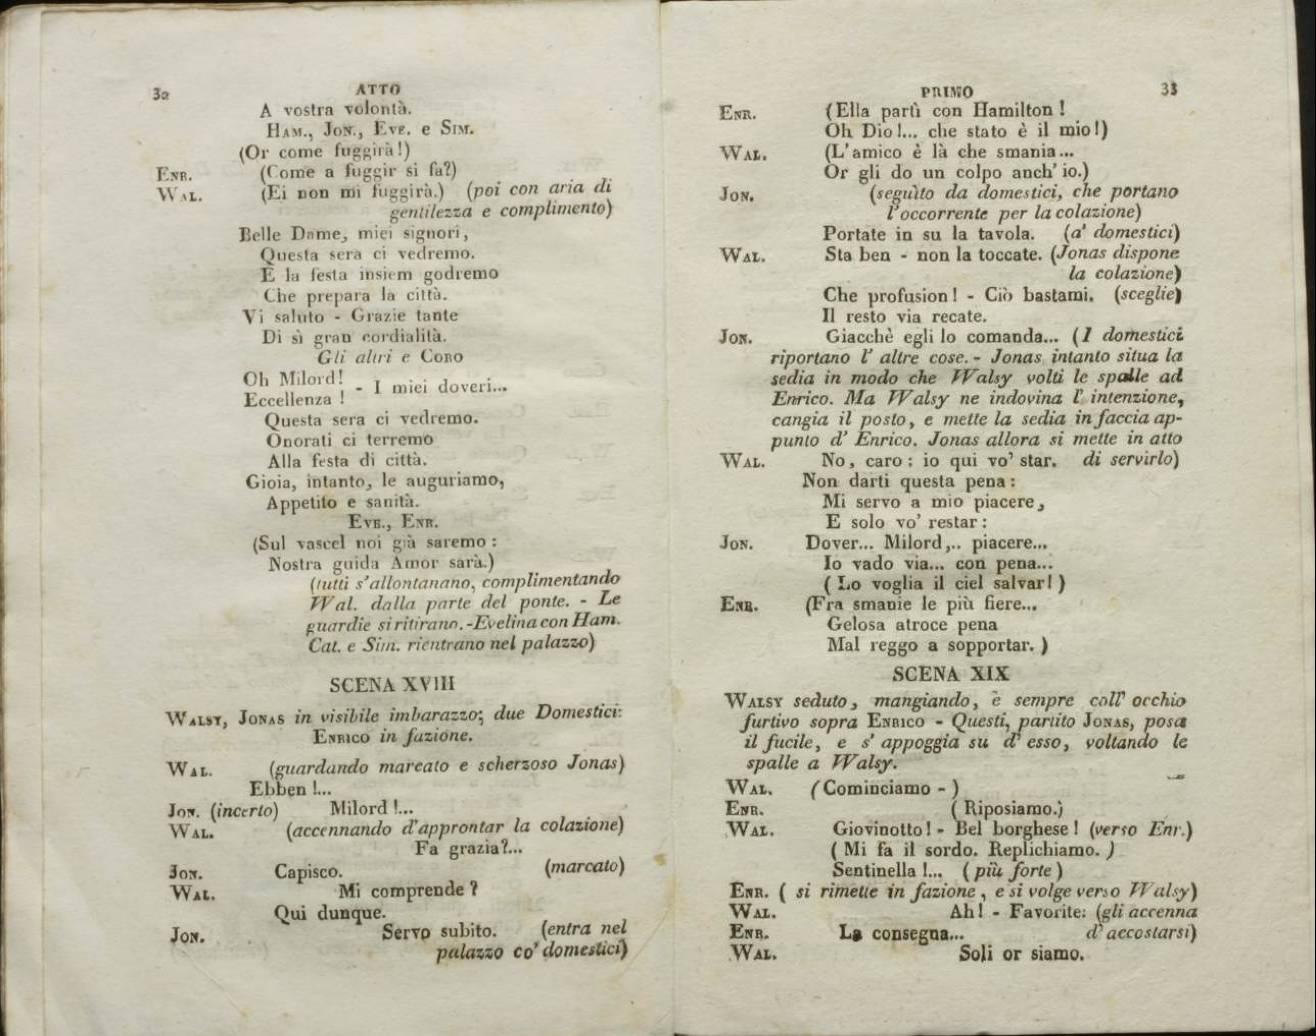 32
ATTO
A vostra volontà.
HAM., JON., EVE. e SIM.
(Or come fuggirà!)
ENR. (Come a fuggir si fa?)
WAL. (Ei non mi fuggirà.) (poi con aria di
gentilezza e complimento)
Belle Dame, miei signori,
Questa sera ci vedremo.
E la festa insiem godremo
Che prepara la città.
Vi saluto - Grazie tante
Di sì gran cordialità.
Gli altri e CORO
Oh Milord!
Eccellenza ! - I miei doveri...
Questa sera ci vedremo.
Onorati ci terremo
Alla festa di città.
Gioia, intanto, le auguriamo,
Appetito e sanità.
EVE., ENR.
(Sul vascel noi già saremo :
Nostra guida Amor sarà.)
(tutti s'allontanano, complimentando
Wal. dalla parte del ponte. - Le
guardie si ritirano. - Evelina con Ham.
Cat. e Sim. rientrano nel palazzo)
SCENA XVIII
WALSY, JONAS in visibile imbarazzo; due Domestici:
ENRICO in fazione.
WAL. (guardando marcato e scherzoso Jonas)
Ebben !...
JON. (incerto) Milord !...
WAL. (accennando d'approntar la colazione)
Fa grazia?...
JON. Capisco. (marcato)
WAL. Mi comprende ?
Qui dunque.
JON. Servo subito. (entra nel
palazzo co' domestici)
PRIMO
33
ENR. (Ella partì con Hamilton !
Oh Dio!... che stato è il mio!)
WAL. (L'amico è là che smania...
Or gli do un colpo anch' io.)
JON. (seguito da domestici, che portano
l'occorrente per la colazione)
Portate in su la tavola. (a' domestici)
WAL. Sta ben - non la toccate. (Jonas dispone
la colazione)
Che profusion! - Ciò bastami. (sceglie)
Il resto via recate.
JON. Giacchè egli lo comanda... (I domestici
riportano l' altre cose. - Jonas intanto situa la
sedia in modo che Walsy volti le spalle ad
Enrico. Ma Walsy ne indovina l' intenzione,
cangia il posto, e mette la sedia in faccia ap-
punto d' Enrico. Jonas allora si mette in atto
WAL. No, caro : io qui vo' star. di servirlo)
Non darti questa pena :
Mi servo a mio piacere,
E solo vo' restar :
JON. Dover... Milord,.. piacere...
Io vado via... con pena...
( Lo voglia il ciel salvar! )
ENR. (Fra smanie le più fiere...
Gelosa atroce pena
Mal reggo a sopportar. )
SCENA XIX
WALSY seduto, mangiando, e sempre coll' occhio
furtivo sopra ENRICO - Questi, partito JONAS, posa
il fucile, e s' appoggia su d' esso, voltando le
spalle a Walsy.
WAL. (Cominciamo - )
ENR. ( Riposiamo.)
WAL. Giovinotto! - Bel borghese ! (verso Enr.)
( Mi fa il sordo. Replichiamo. )
Sentinella !... ( più forte )
ENR. ( si rimette in fazione , e si volge verso Walsy)
WAL. Ah! - Favorite: (gli accenna
ENR. La consegna... d' accostarsi)
WAL. Soli or siamo.